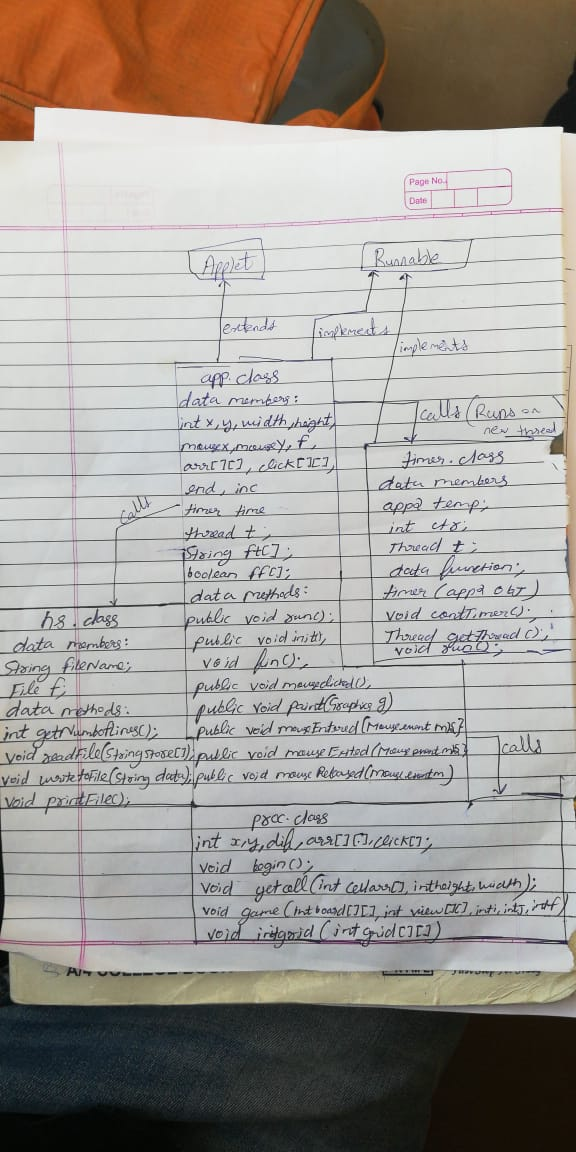 Page No.
Date
Applet
Runnable
extends
implements
implements
app.class
data members:
int x,y,width,height,
mousex,mousey, f,
arr[][], click[][],
end, inc
timer time
thread t;
String ft[];
boolean ff[];
data methods:
public void run();
public void init(),
void fun();
public void mouseclicked(),
public void paint(Graphics g)
public void mouseEntered(Mouse event m)
public void mouse Exited(Mouse event m)
public void mouse Released(mouse event m)
calls (Runs on
new thread
timer.class
data members
app2 temp;
int ctr;
Thread t;
data function;
timer (app2 obj)
void contTimer();
Thread getThread();
void run();
calls
hs.class
data members:
String fileName;
File f;
data methods:
int getNumbofLines();
void readFile(String store[]);
void writetoFile(String data);
void printFile();
calls
proc.class
int x,y,dif, arr[][], click[];
void begin();
void getcell(int cellarr[], int height, width);
void game (int board[][], int view[][], int i, int j, int f)
void initgrid (int grid[][])